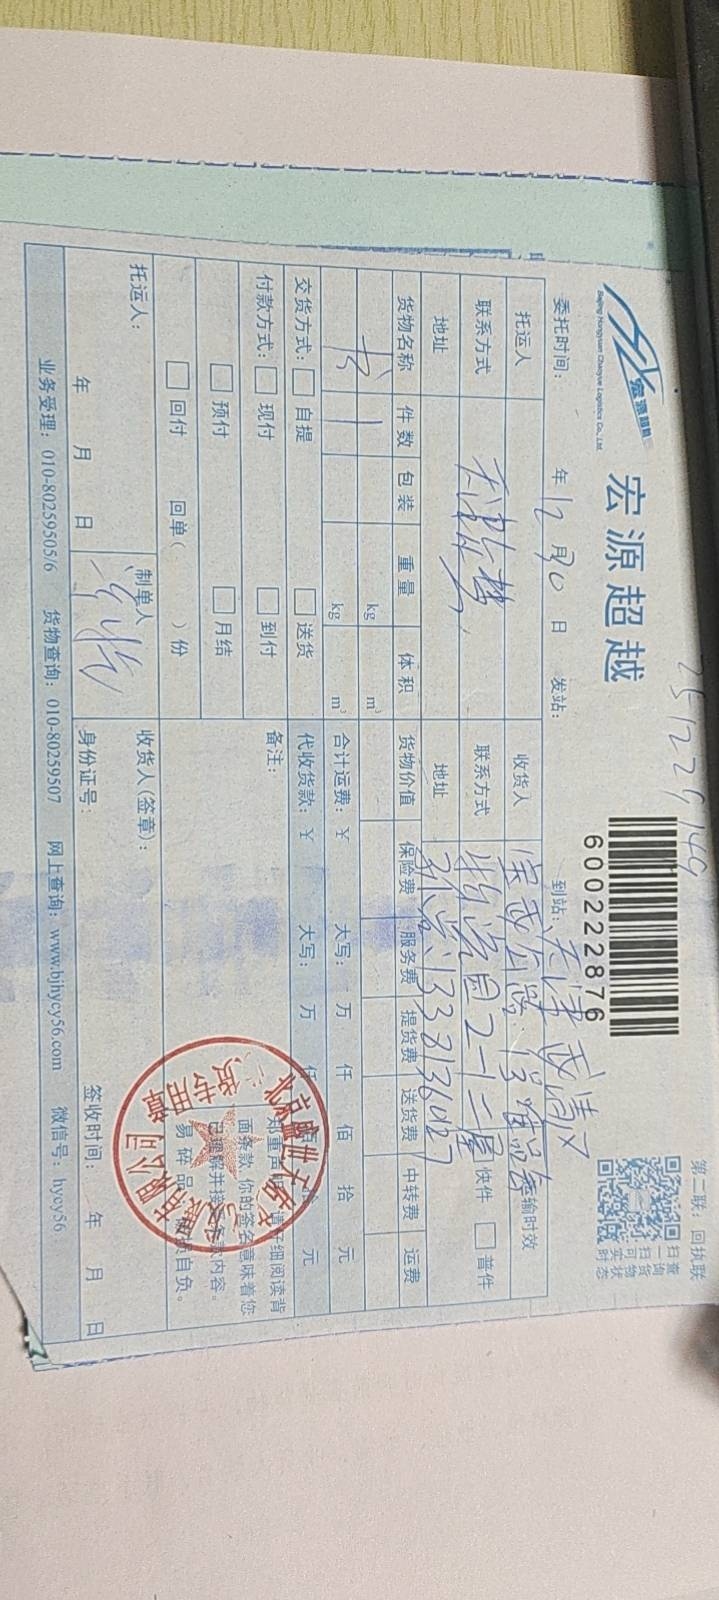 25-1229149
第二联：回执联
宏源超越
Beijing Hongyuan Chaoyue Logistics Co., Ltd.
宏源超越
600222876
扫一扫可查询货物实时状态
委托时间： 年 12 月 30 日 发站： 到站：天津武清区
托运人 收货人 运输时效
联系方式 联系方式 快件 普件
物流园2-1二层
地址 地址
13381364
货物名称 件数 包装 重量 体积 货物价值 保险费 服务费 提货费 送货费 中转费 运费
书 1 kg m³
kg m³ 合计运费：￥ 大写： 万 仟 佰 拾 元
交货方式： 自提 送货 代收货款：￥ 大写： 万 仟 元
付款方式： 现付 到付 备注：
预付 月结
回付 回单（ ）份
郑重声明：请仔细阅读背
面条款，你的签名意味着您
已理解并接受条款内容。
易碎品 自负。
托运人： 制单人 收货人（签章）：
年 月 日 身份证号： 签收时间： 年 月 日
业务受理：010-80259505/6 货物查询：010-80259507 网上查询：www.bjhycy56.com 微信号：hycy56